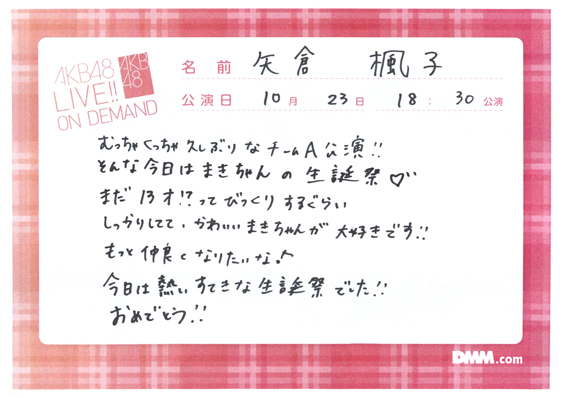 AKB48
LIVE!!
ON DEMAND
AKB
48
名前 矢倉 楓子
公演日 10月 23日 18:30公演
むっちゃくっちゃ久しぶりなチームA公演!!
そんな今日はまきちゃんの生誕祭♡
まだ13才!?ってびっくりするぐらい
しっかりしてて、かわいいまきちゃんが大好きです!!
もっと仲良くなりたいな♪
今日は熱いすてきな生誕祭でした!!
おめでとう!!
DMM.com